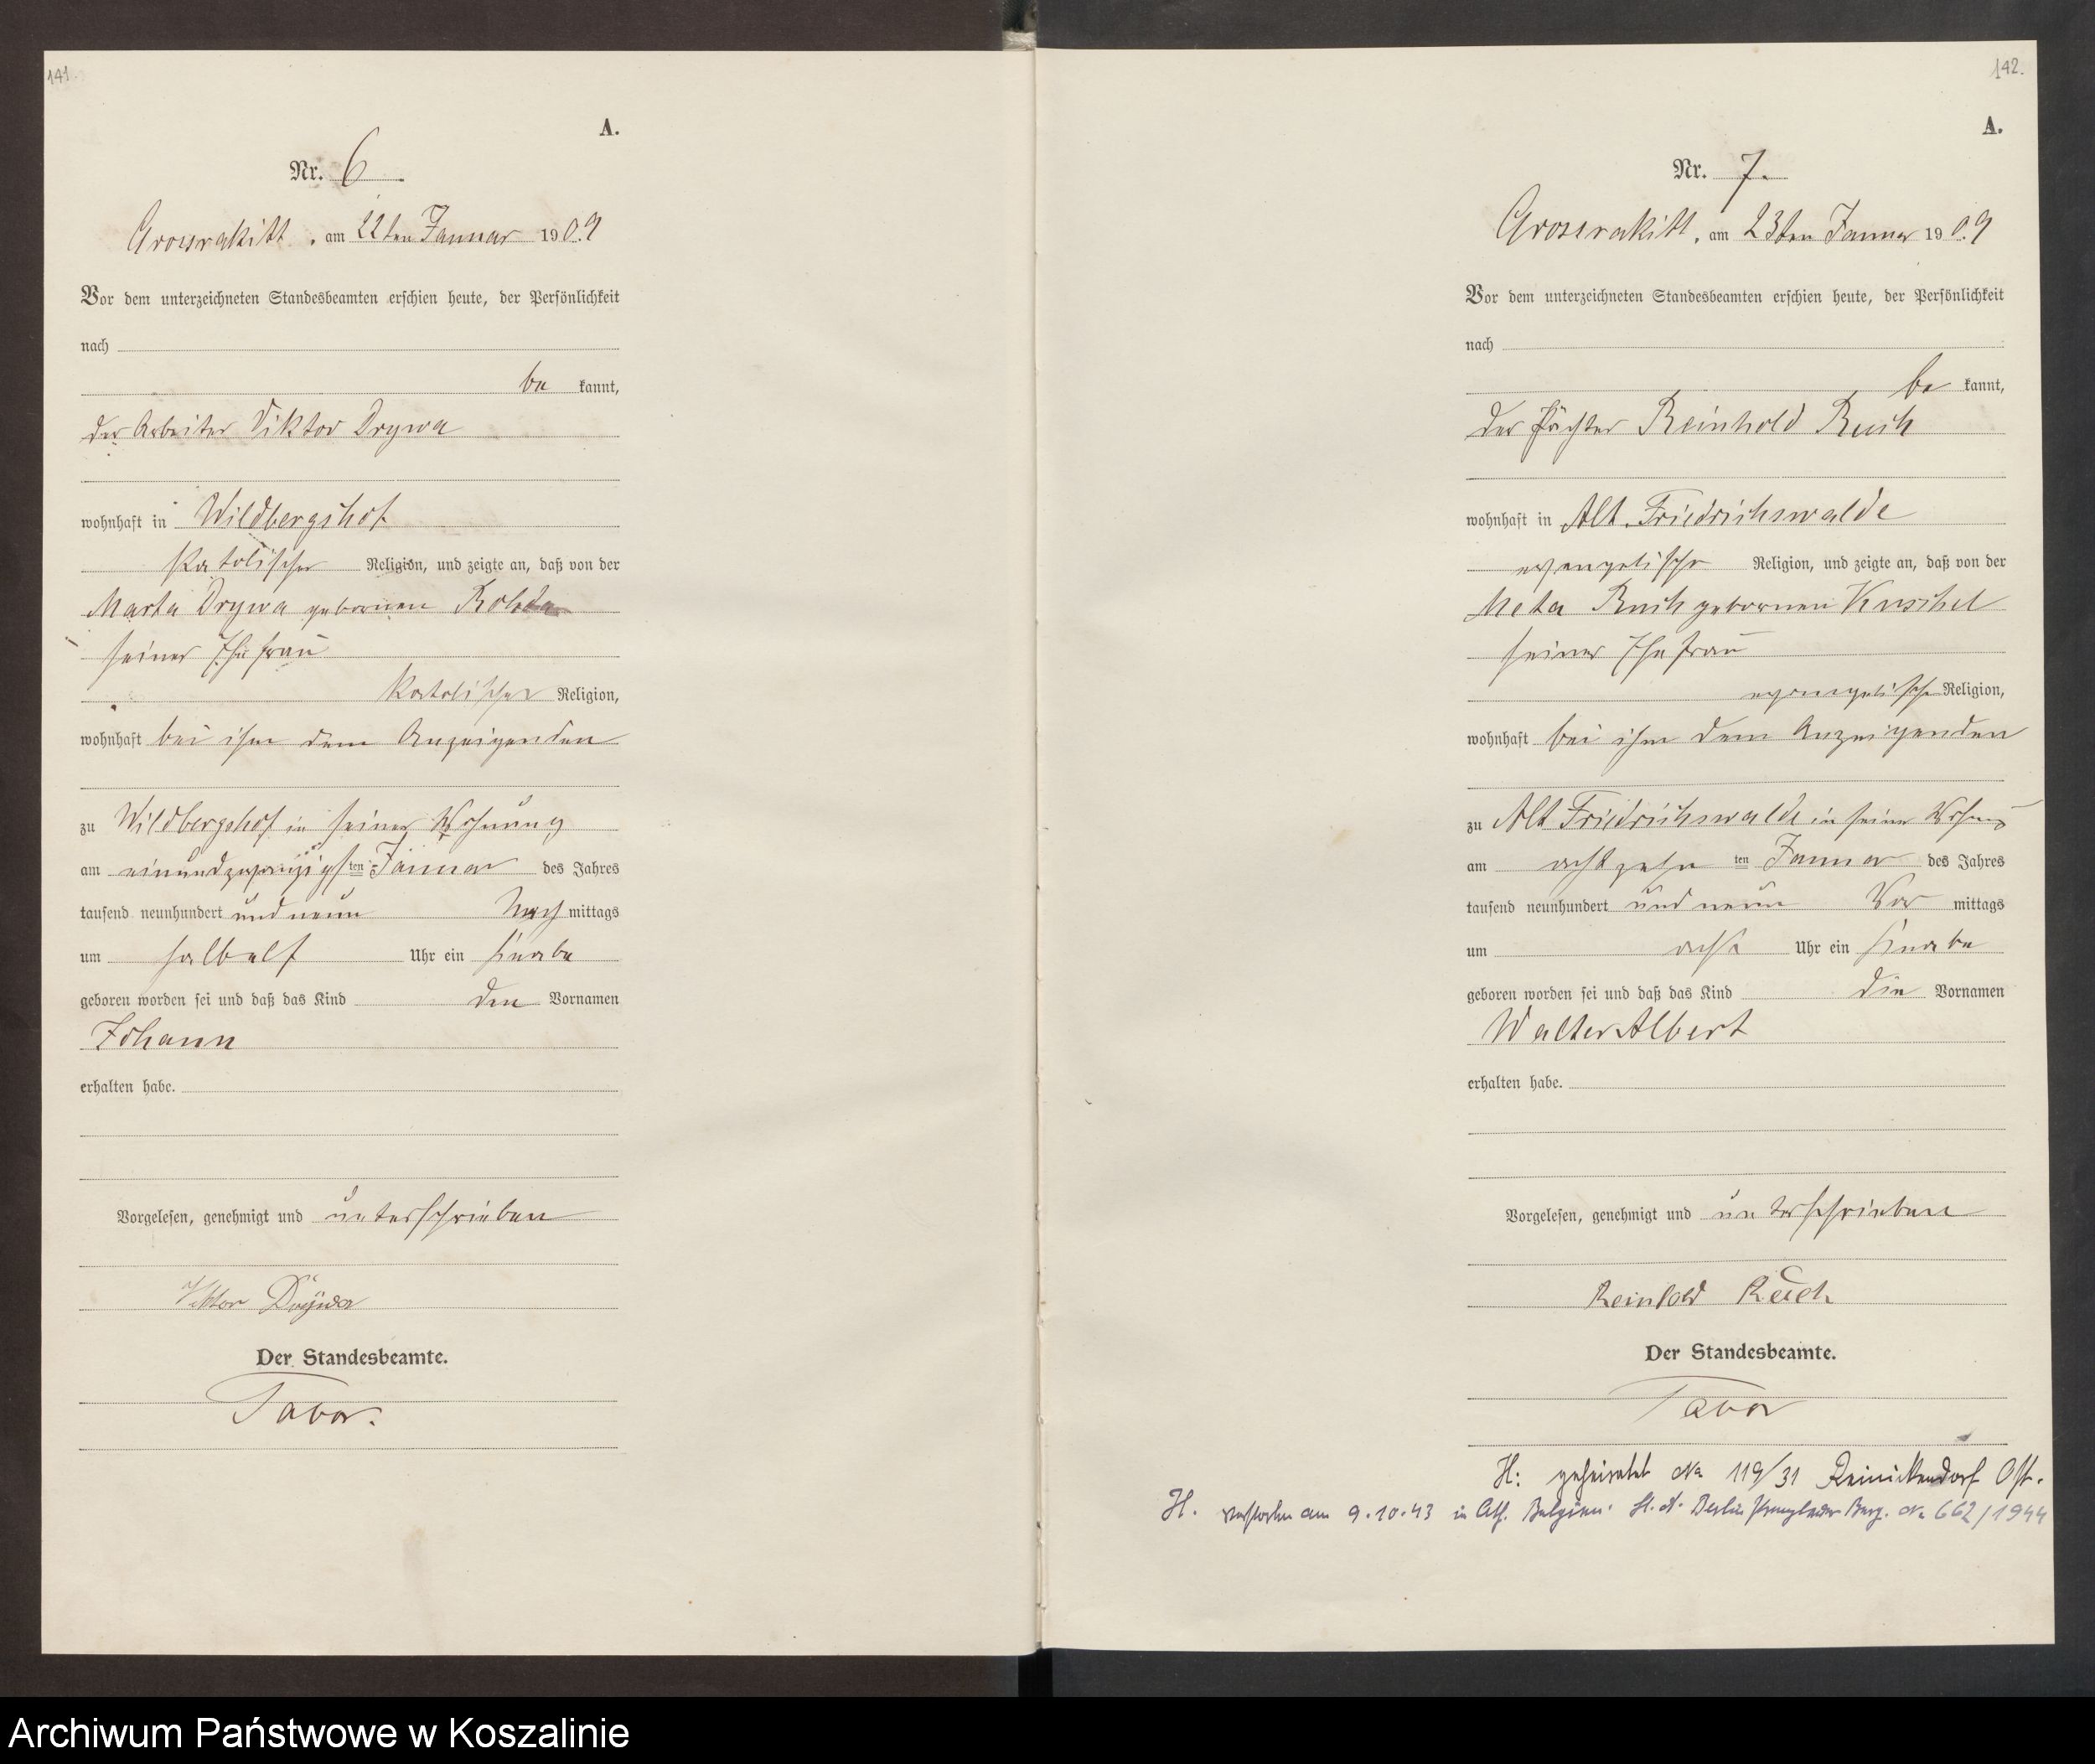 141.
A.
Nr. 6
Grossrakitt, am 22ten Januar 1909
Vor dem unterzeichneten Standesbeamten erschien heute, der Persönlichkeit
nach
be kannt,
der Arbeiter Viktor Drywa
wohnhaft in Wildbergshof
katolischer Religion, und zeigte an, daß von der
Marta Drywa geborenen
seiner Ehefrau
katolischer Religion,
wohnhaft bei ihm dem Anzeigenden
zu Wildbergshof in seiner Wohnung
am einundzwanzigsten Januar des Jahres
tausend neunhundert und neun Nach mittags
um halb elf Uhr ein Knabe
geboren worden sei und daß das Kind den Vornamen
Johann
erhalten habe.
Vorgelesen, genehmigt und unterschrieben
Viktor Drÿwa
Der Standesbeamte.
Tabor.
142.
A.
Nr. 7.
Grossrakitt, am 23ten Januar 1909
Vor dem unterzeichneten Standesbeamten erschien heute, der Persönlichkeit
nach
be kannt,
der Pächter Reinhold Ruch
wohnhaft in Alt. Friedrichswalde
evangelischer Religion, und zeigte an, daß von der
Meta Ruch geborenen Kuschel
seiner Ehefrau
evangelischer Religion,
wohnhaft bei ihm dem Anzeigenden
zu Alt Friedrichswalde in seiner Wohnung
am achtzehn ten Januar des Jahres
tausend neunhundert und neun Vor mittags
um acht Uhr ein Knabe
geboren worden sei und daß das Kind die Vornamen
Walter Albert
erhalten habe.
Vorgelesen, genehmigt und unterschrieben
Reinhold Ruch
Der Standesbeamte.
Tabor
H: geheiratet No 119/31 Reinickendorf Ost.
H. verstorben am 9.10.43 in Ath. Belgien. St. A. Berlin Prenzlauer Berg. No 662/1944
Archiwum Państwowe w Koszalinie